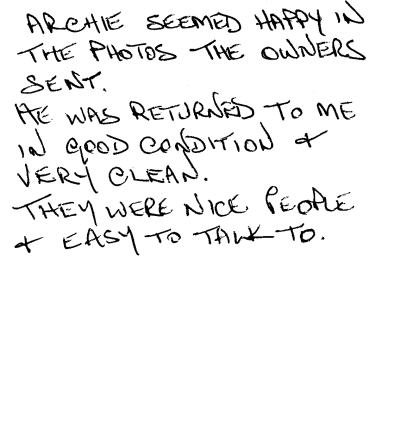 ARCHIE SEEMED HAPPY IN
THE PHOTOS THE OWNERS
SENT.
HE WAS RETURNED TO ME
IN GOOD CONDITION &
VERY CLEAN.
THEY WERE NICE PEOPLE
& EASY TO TALK TO.